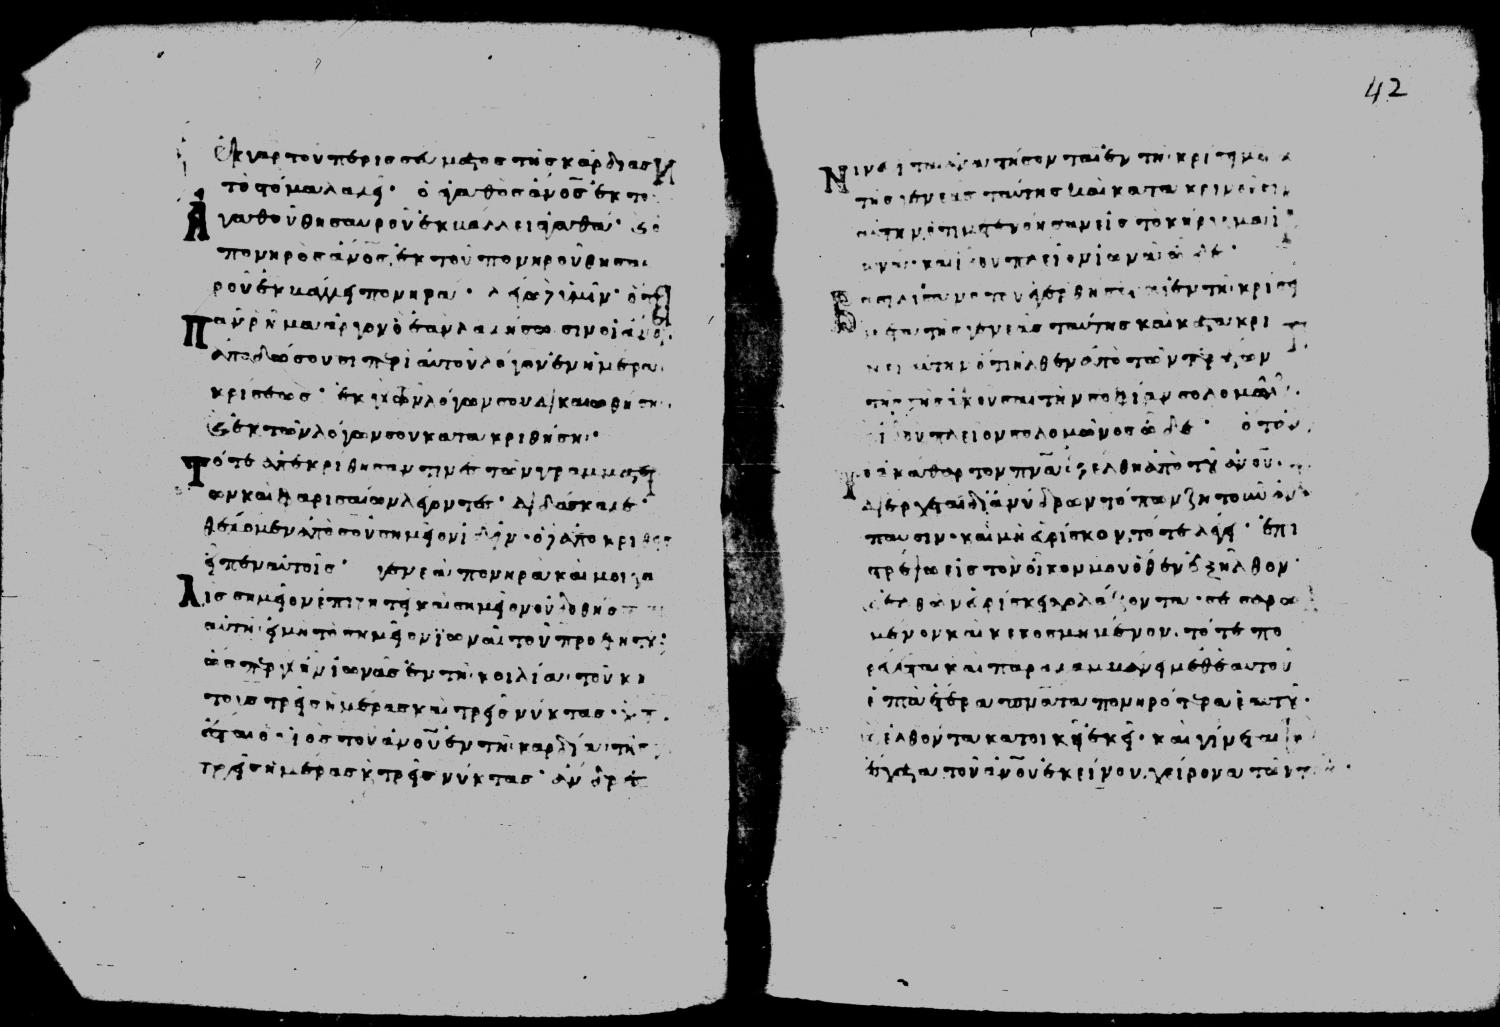 ἐκ γὰρ τοῦ περισσεύματος τῆς καρδίας
τὸ στόμα λαλεῖ· ὁ ἀγαθὸς ἄνος ἐκ τοῦ
ἀγαθοῦ θησαυροῦ ἐκβάλλει ἀγαθά·
πονηρὸς ἄνος ἐκ τοῦ πονηροῦ θησαυ
ροῦ ἐκβάλλει πονηρά· λέγω ὑμῖν· ὅτι
πᾶν ῥῆμα ἀργὸν ὃ ἐὰν λαλήσωσιν οἱ ἄνοι
ἀποδώσουσι περὶ αὐτοῦ λόγον ἐν ἡμέρα
κρίσεως· ἐκ γὰρ τῶν λόγων σου δικαιωθήση
ἐκ τῶν λόγων σου κατακριθήση·
Τότε ἀπεκρίθησαν τινὲς τῶν γραμματέ
ων καὶ Φαρισαίων λέγοντες· διδάσκαλε
θέλομεν ἀπὸ σοῦ σημεῖον ἰδεῖν· ὁ δὲ ἀποκριθεὶς
εἶπεν αὐτοῖς· γενεὰ πονηρὰ καὶ μοιχα
λὶς σημεῖον ἐπιζητεῖ καὶ σημεῖον οὐ δοθήσεται
αὐτῇ εἰ μὴ τὸ σημεῖον ἰωνᾶ τοῦ προφήτου·
ὥσπερ ἦν ἰωνᾶς ἐν τῇ κοιλία τοῦ κή
τους τρεῖς ἡμέρας καὶ τρεῖς νύκτας·
ἔσται ὁ ὑιὸς τοῦ ἀνου ἐν τῇ καρδία τῆς
τρεῖς ἡμέρας κ τρεῖς νύκτας· ἄνδρες
Νινευῖται ἀναστήσονται ἐν τῇ κρίσει με
τῆς γενεᾶς ταύτης καὶ κατακρινοῦσιν
αὐτὴν ὅτι μετενόησαν εἰς τὸ κήρυγμα ἰ
ωνᾶ· καὶ ἰδοὺ πλεῖον ἰωνᾶ ὧδε·
Βασίλισσα νότου ἐγερθήσεται ἐν τῇ κρίσει
μετὰ τῆς γενεᾶς ταύτης καὶ κατακρι
νεῖ αὐτὴν ὅτι ἦλθεν ἀπὸ τῶν περάτων
τῆς γῆς ἀκοῦσαι τὴν σοφίαν σολομῶν
ἰδοὺ πλεῖον σολομῶνος ὧδε· ὅταν
τὸ ἀκάθαρτον πνα ἐξέλθη ἀπὸ τοῦ ἀνου·
διέρχεται δι' ἀνύδρων τόπων ζητοῦν ἀνά
παυσιν· καὶ μὴ εὑρίσκον, τότε λέγει· ἐπι
στρέψω εἰς τὸν οἶκον μου ὅθεν ἐξῆλθον·
ἐλθὼν εὑρίσκει σχολάζοντα· σεσαρω
μένον καὶ κεκοσμημένον. τότε πο
ρεύεται καὶ παραλαμβάνει μεθ' ἑαυτοῦ
ἑπτὰ ἕτερα πνατα πονηρότερα ἑαυτοῦ·
ἐλθόντα κατοικεῖ ἐκεῖ· καὶ γίνεται
ἔσχατα τοῦ ἀνου ἐκείνου χείρονα τῶν
42